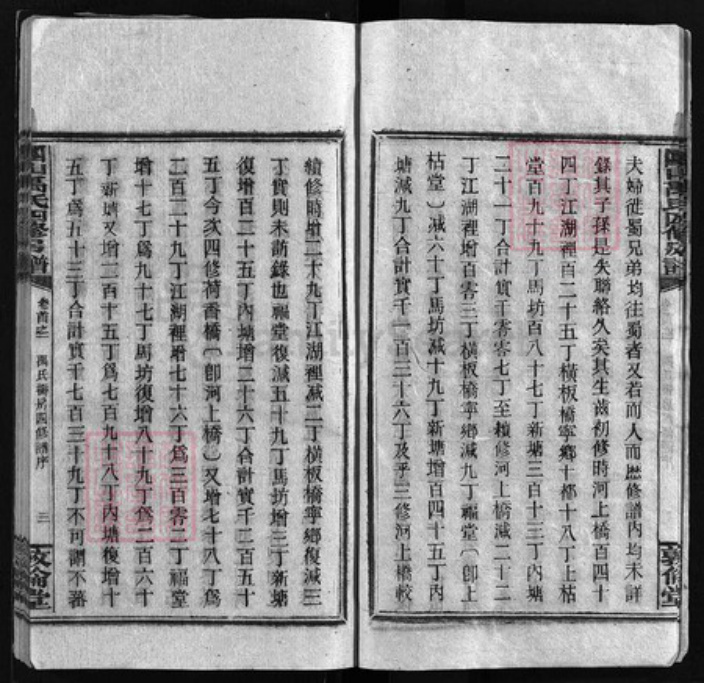 夫婦徙蜀兄弟均往蜀者又若而人而歷修譜內均未詳
錄其子孫是失聯絡久矣其生齒初修時河上橋百四十
四丁江湖裡百二十五丁橫板橋寧鄉十都十八丁上枯
堂百九十九丁馬坊百八十七丁新塘三百十三丁內塘
二十一丁合計實千零零七丁至續修河上橋減二十二
丁江湖裡增百零三丁橫板橋寧鄉減九丁福堂(卽上
枯堂)減六十丁馬坊減十九丁新塘增百四十五丁丙
塘減九丁合計實千一百三十六丁及乎三修河上橋較
續修時增二十九丁江湖裡減二丁橫板橋寧鄉復減三
丁實則未訪錄也福堂復減五十九丁馬坊增三丁新塘
復增百二十五丁內塘增二十六丁合計實千二百五十
五丁今次四修荷香橋(卽河上橋)又增七十八丁爲
二百二十九丁江湖裡增七十六丁爲三百零二丁福堂
增十七丁爲九十七丁馬坊復增八十九丁爲二百六十
丁新塘又增二百十五丁爲七百九十八丁內塘復增十
五丁爲五十三丁合計實千七百三十九丁不可謂不蕃
萬氏四修宗譜
卷首之一 萬氏衡房四修譜序 三
敦倫堂